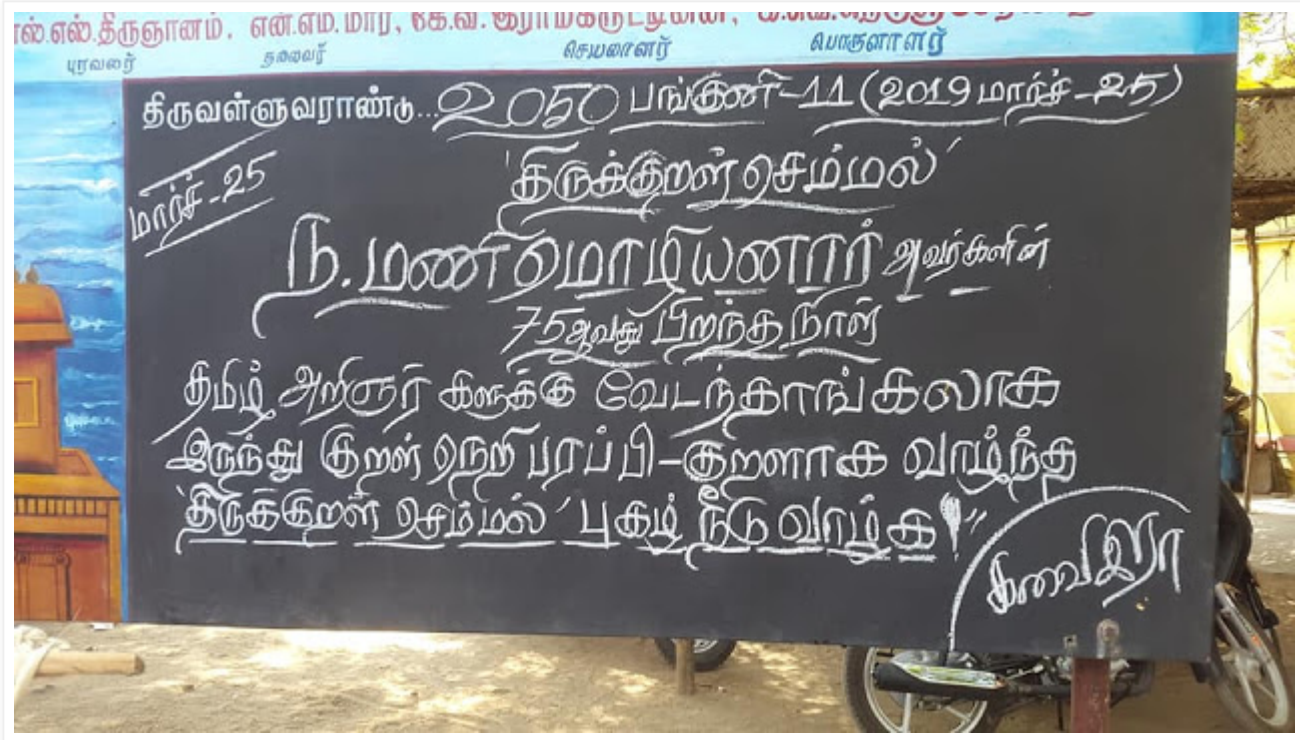 எஸ்.எஸ்.திருஞானம், என்.எம்.மாரி, கே.வி.இராமகிருட்டினன்,
புரவலர் தலைவர் செயலாளர் பொருளாளர்
திருவள்ளுவராண்டு... 2050 பங்குனி-11 (2019 மார்ச்-25)
மார்ச்-25
'திருக்குறள் செம்மல்'
ந.மணிமொழியனார் அவர்களின்
75ஆவது பிறந்த நாள்
தமிழ் அறிஞர் களுக்கு வேடந்தாங்கலாக
இருந்து குறள் நெறி பரப்பி-குறளாக வாழ்ந்த
'திருக்குறள் செம்மல்' புகழ் நீடு வாழ்க!